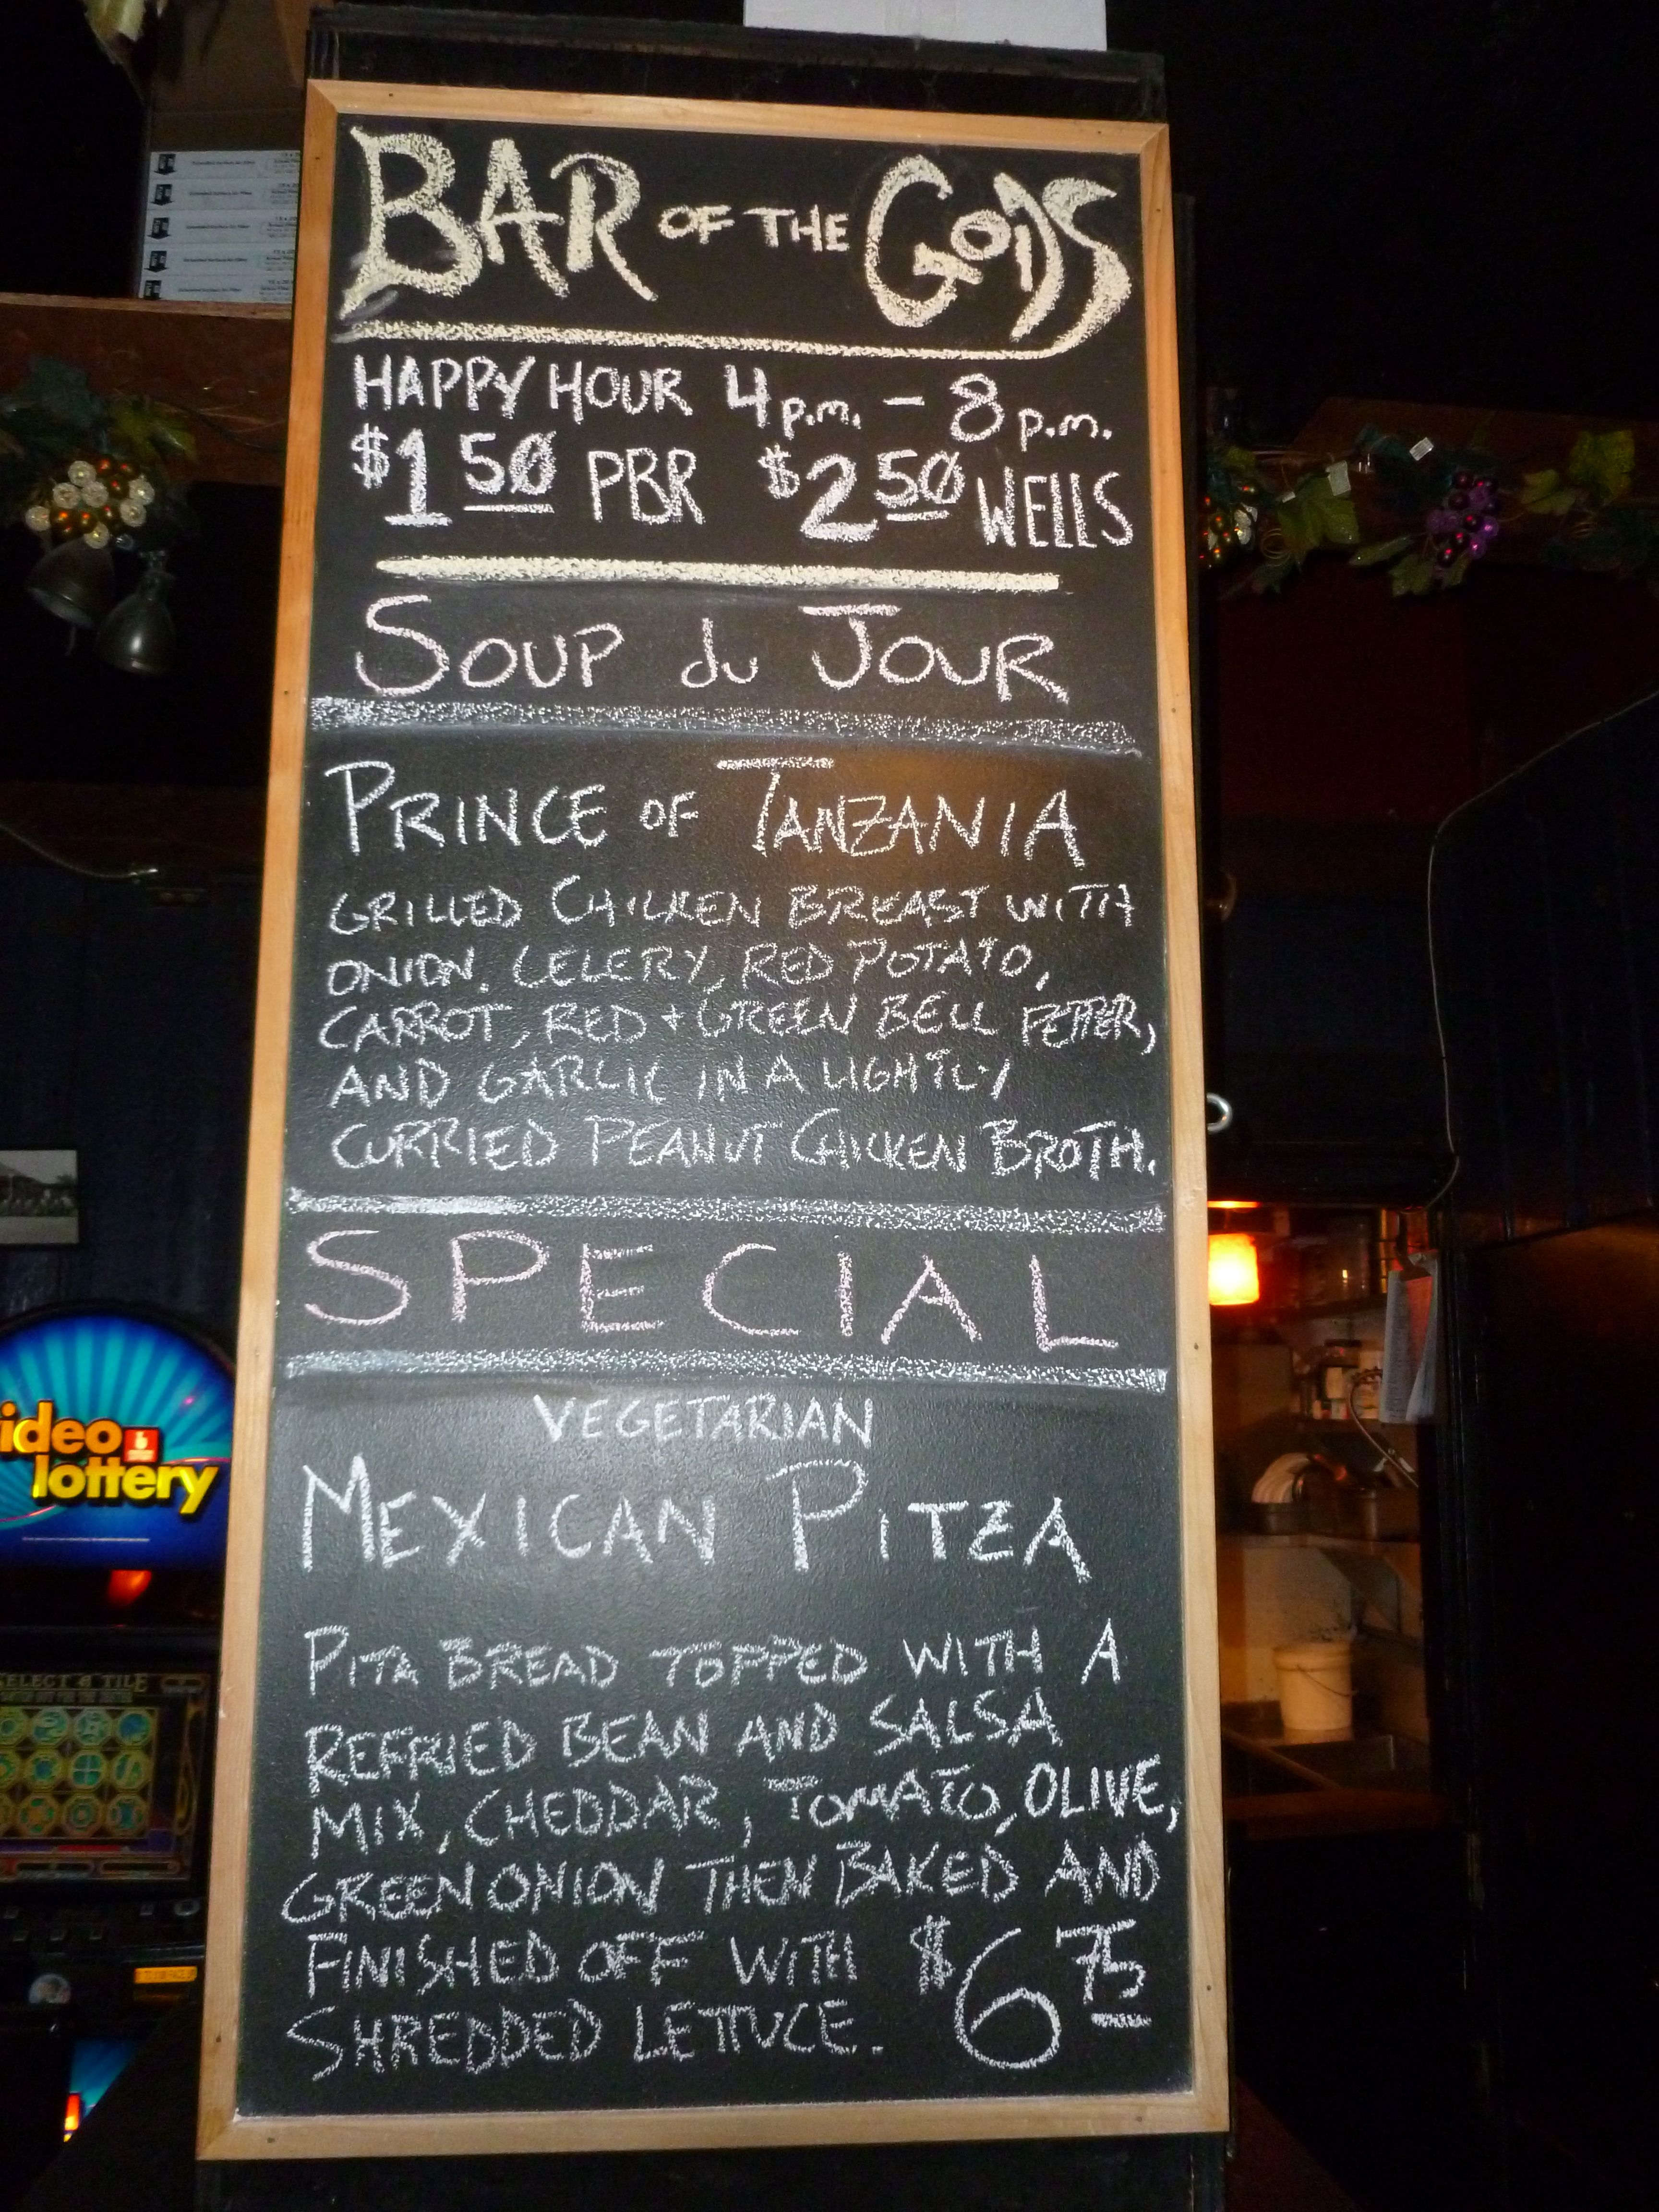 BAR OF THE GODS
HAPPY HOUR 4 p.m. – 8 p.m.
$1 50 PBR $2 50 WELLS
SOUP du JOUR
PRINCE OF TANZANIA
GRILLED CHICKEN BREAST WITH
ONION, CELERY, RED POTATO,
CARROT, RED + GREEN BELL PEPPER,
AND GARLIC IN A LIGHTLY
CURRIED PEANUT CHICKEN BROTH.
SPECIAL
VEGETARIAN
MEXICAN PITZA
PITA BREAD TOPPED WITH A
REFRIED BEAN AND SALSA
MIX, CHEDDAR, TOMATO, OLIVE,
GREEN ONION THEN BAKED AND
FINISHED OFF WITH $6 75
SHREDDED LETTUCE.
ideo
lottery
ELECT A TILE